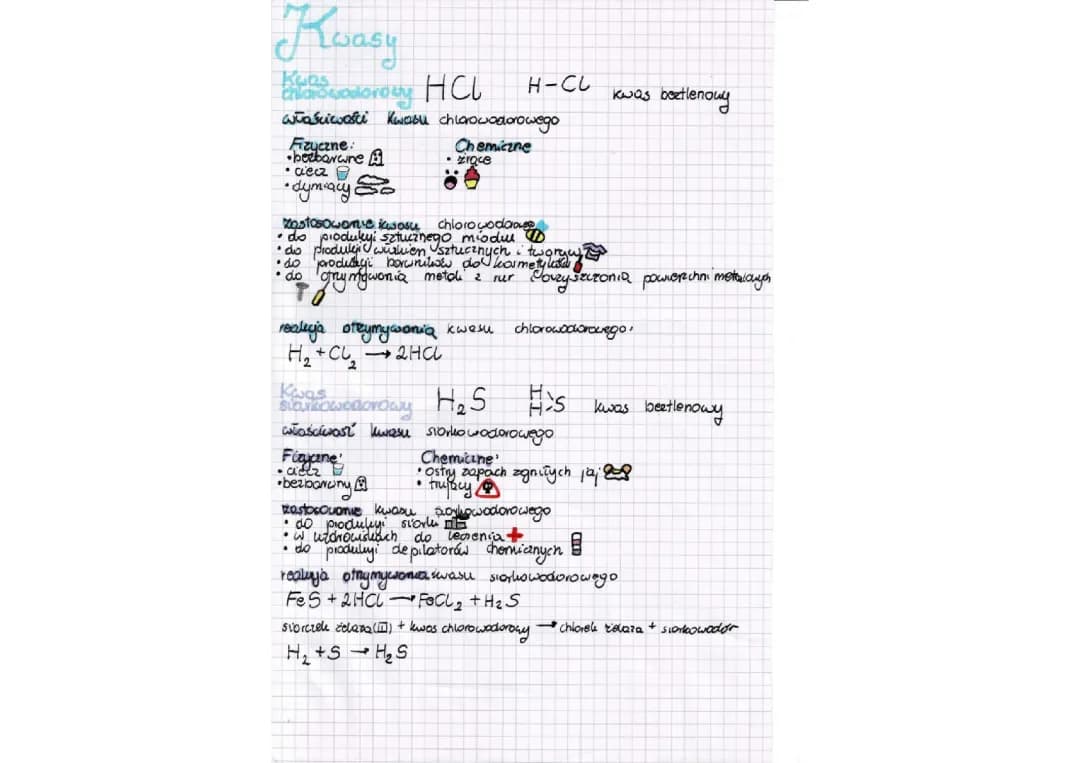 Kwasy
Kwas
chlorowodorowy HCl H-Cl kwas beztlenowy
właściwości kwasu chlorowodorowego
Fizyczne: Chemiczne
• bezbarwne • żrące
• ciecz
• dymiący
zastosowanie kwasu chlorowodorowego
• do produkcji sztucznego miodu
• do produkcji włókien sztucznych i tworzyw
• do produkcji barwników do kosmetyków
• do otrzymywania metali z rur i oczyszczania powierzchni metalowych
reakcja otrzymywania kwasu chlorowodorowego:
H₂ + Cl₂ → 2HCl
Kwas
siarkowodorowy H₂S H H S kwas beztlenowy
właściwość kwasu siarkowodorowego
Fizyczne: Chemiczne:
• ciecz • ostry zapach zgniłych jaj
• bezbarwny • trujący
zastosowanie kwasu siarkowodorowego
• do produkcji siarki
• w uzdrowiskach do leczenia
• do produkcji depilatorów chemicznych
reakcja otrzymywania kwasu siarkowodorowego
FeS + 2HCl → FeCl₂ + H₂S
siarczek żelaza (II) + kwas chlorowodorowy → chlorek żelaza + siarkowodór
H₂ + S → H₂S